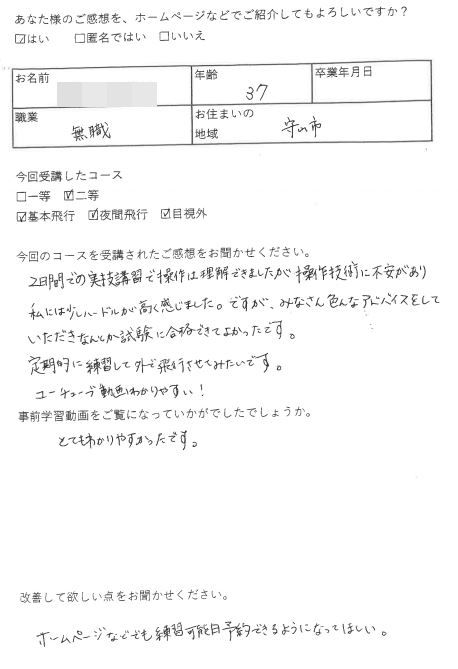 あなた様のご感想を、ホームページなどでご紹介してもよろしいですか?
☑はい □匿名ではい □いいえ
お名前 年齢 37 卒業年月日
職業 無職 お住まいの地域 守山市
今回受講したコース
□一等 ☑二等
☑基本飛行 ☑夜間飛行 ☑目視外
今回のコースを受講されたご感想をお聞かせください。
2日間での実技講習で操作は理解できましたが操作技術に不安があり
私には少しハードルが高く感じました。ですが、みなさん色んなアドバイスをして
いただきなんとか試験に合格できてよかったです。
定期的に練習して外で飛行させてみたいです。
ユーチューブ動画わかりやすい!
事前学習動画をご覧になっていかがでしたでしょうか。
とてもわかりやすかったです。
改善して欲しい点をお聞かせください。
ホームページなどでも練習可能日予約できるようになってほしい。